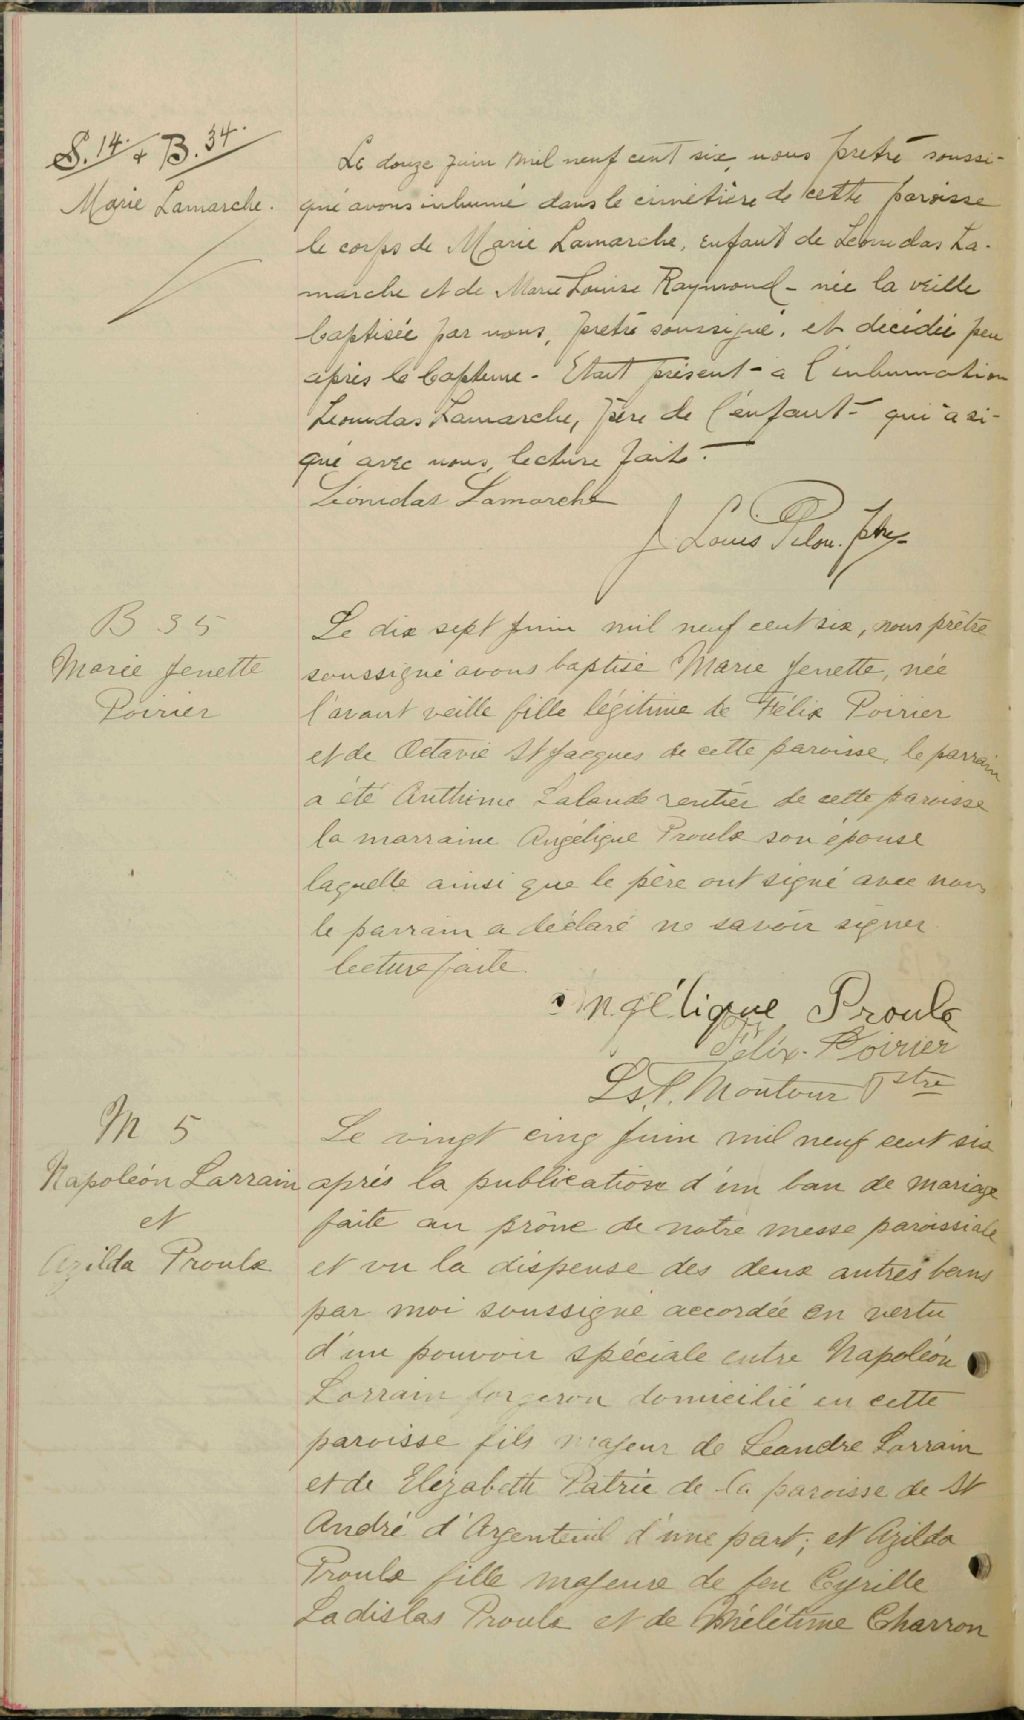 S. 14. + B. 34.
Marie Lamarche.
Le douze juin mil neuf cent six, nous prêtre soussi-
gné avons inhumé dans le cimetière de cette paroisse
le corps de Marie Lamarche, enfant de Leonidas La-
marche et de Marie Louise Raymond - née la veille
baptisée par nous, prêtre soussigné, et décédée peu
après le baptême - Etait présent à l'inhumation
Leonidas Lamarche, père de l'enfant - qui a si-
gné avec nous, lecture faite.
Léonidas Lamarche
J. Louis Pilon. Ptre
B 35
Marie Jenette
Poirier
Le dix sept Juin mil neuf cent six, nous prêtre
soussigné avons baptisé Marie Jenette, née
l'avant veille fille légitime de Félix Poirier
et de Octavie St Jacques de cette paroisse, le parrain
a été Anthime Lalande rentier de cette paroisse
la marraine Angélique Proulx son épouse
laquelle ainsi que le père ont signé avec nous
le parrain a déclaré ne savoir signer
lecture faite.
Angélique Proulx
Félix Poirier
Ls. P. Montour Ptre
M 5
Napoléon Larrain
et
Azilda Proulx
Le vingt cinq Juin mil neuf cent six
après la publication d'un ban de mariage
faite au prône de notre messe paroissiale
et vu la dispense des deux autres bans
par moi soussigné accordée en vertu
d'un pouvoir spéciale entre Napoléon
Larrain forgeron domicilié en cette
paroisse fils majeur de Léandre Larrain
et de Elizabeth Patrie de la paroisse de St
André d'Argenteuil d'une part; et Azilda
Proulx fille majeure de feu Cyrille
Ladislas Proulx et de Mélétime Charron